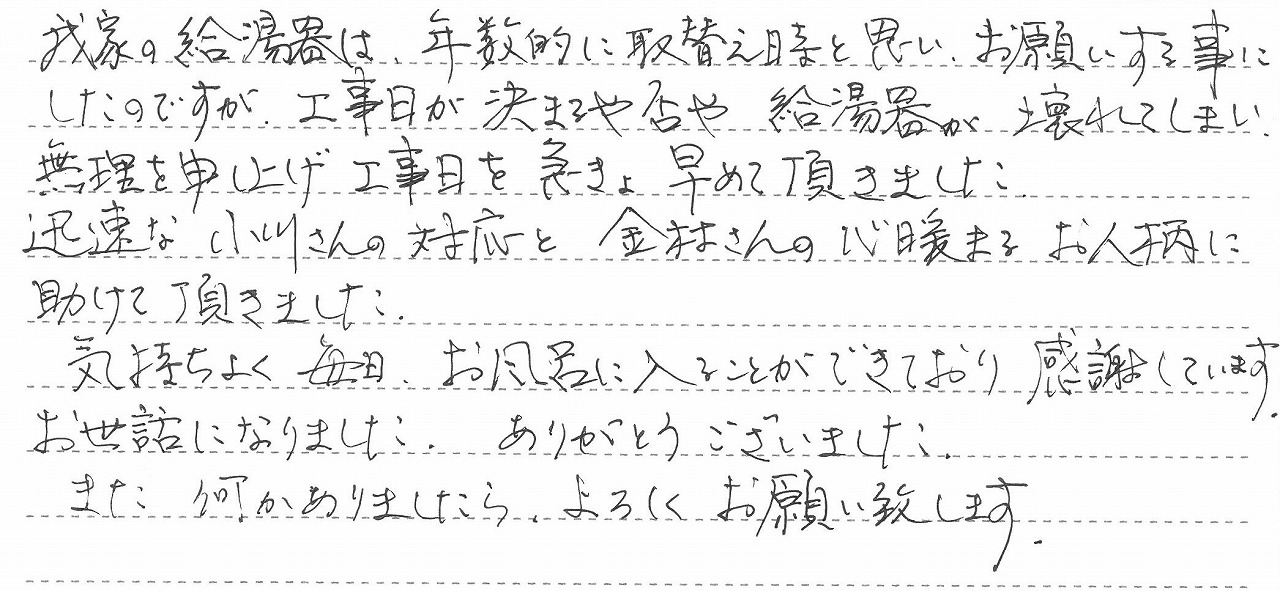 我家の給湯器は、年数的に取替え時と思い、お願いする事に
したのですが、工事日が決まるや否や 給湯器が 壊れてしまい、
無理を申し上げ 工事日を 急きょ 早めて頂きました。
迅速な 小川さんの 対応と 金林さんの 心暖まる お人柄に
助けて頂きました。
気持ちよく 毎日、お風呂に入ることができており 感謝しています。
お世話になりました。 ありがとうございました。
また 何かありましたら、よろしく お願い致します。